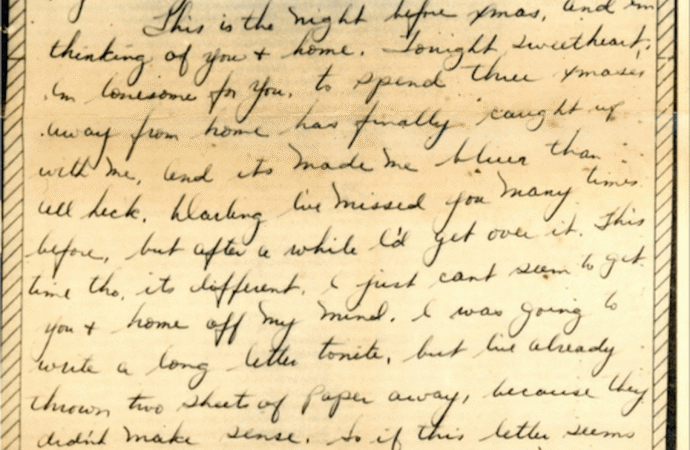 This is the night before Xmas, and im
thinking of you + home. Tonight sweetheart,
Im lonesome for you. to spend three Xmases
away from home has finally caught up
with me, and its made me bluer than
all heck. Darling Ive missed you many times
before, but after a while I'd get over it. This
time tho, its different. I just cant seem to get
you + home off my mind. I was going to
write a long letter tonite, but Ive already
thrown two sheets of paper away, because they
didn't make sense. So if this letter seems